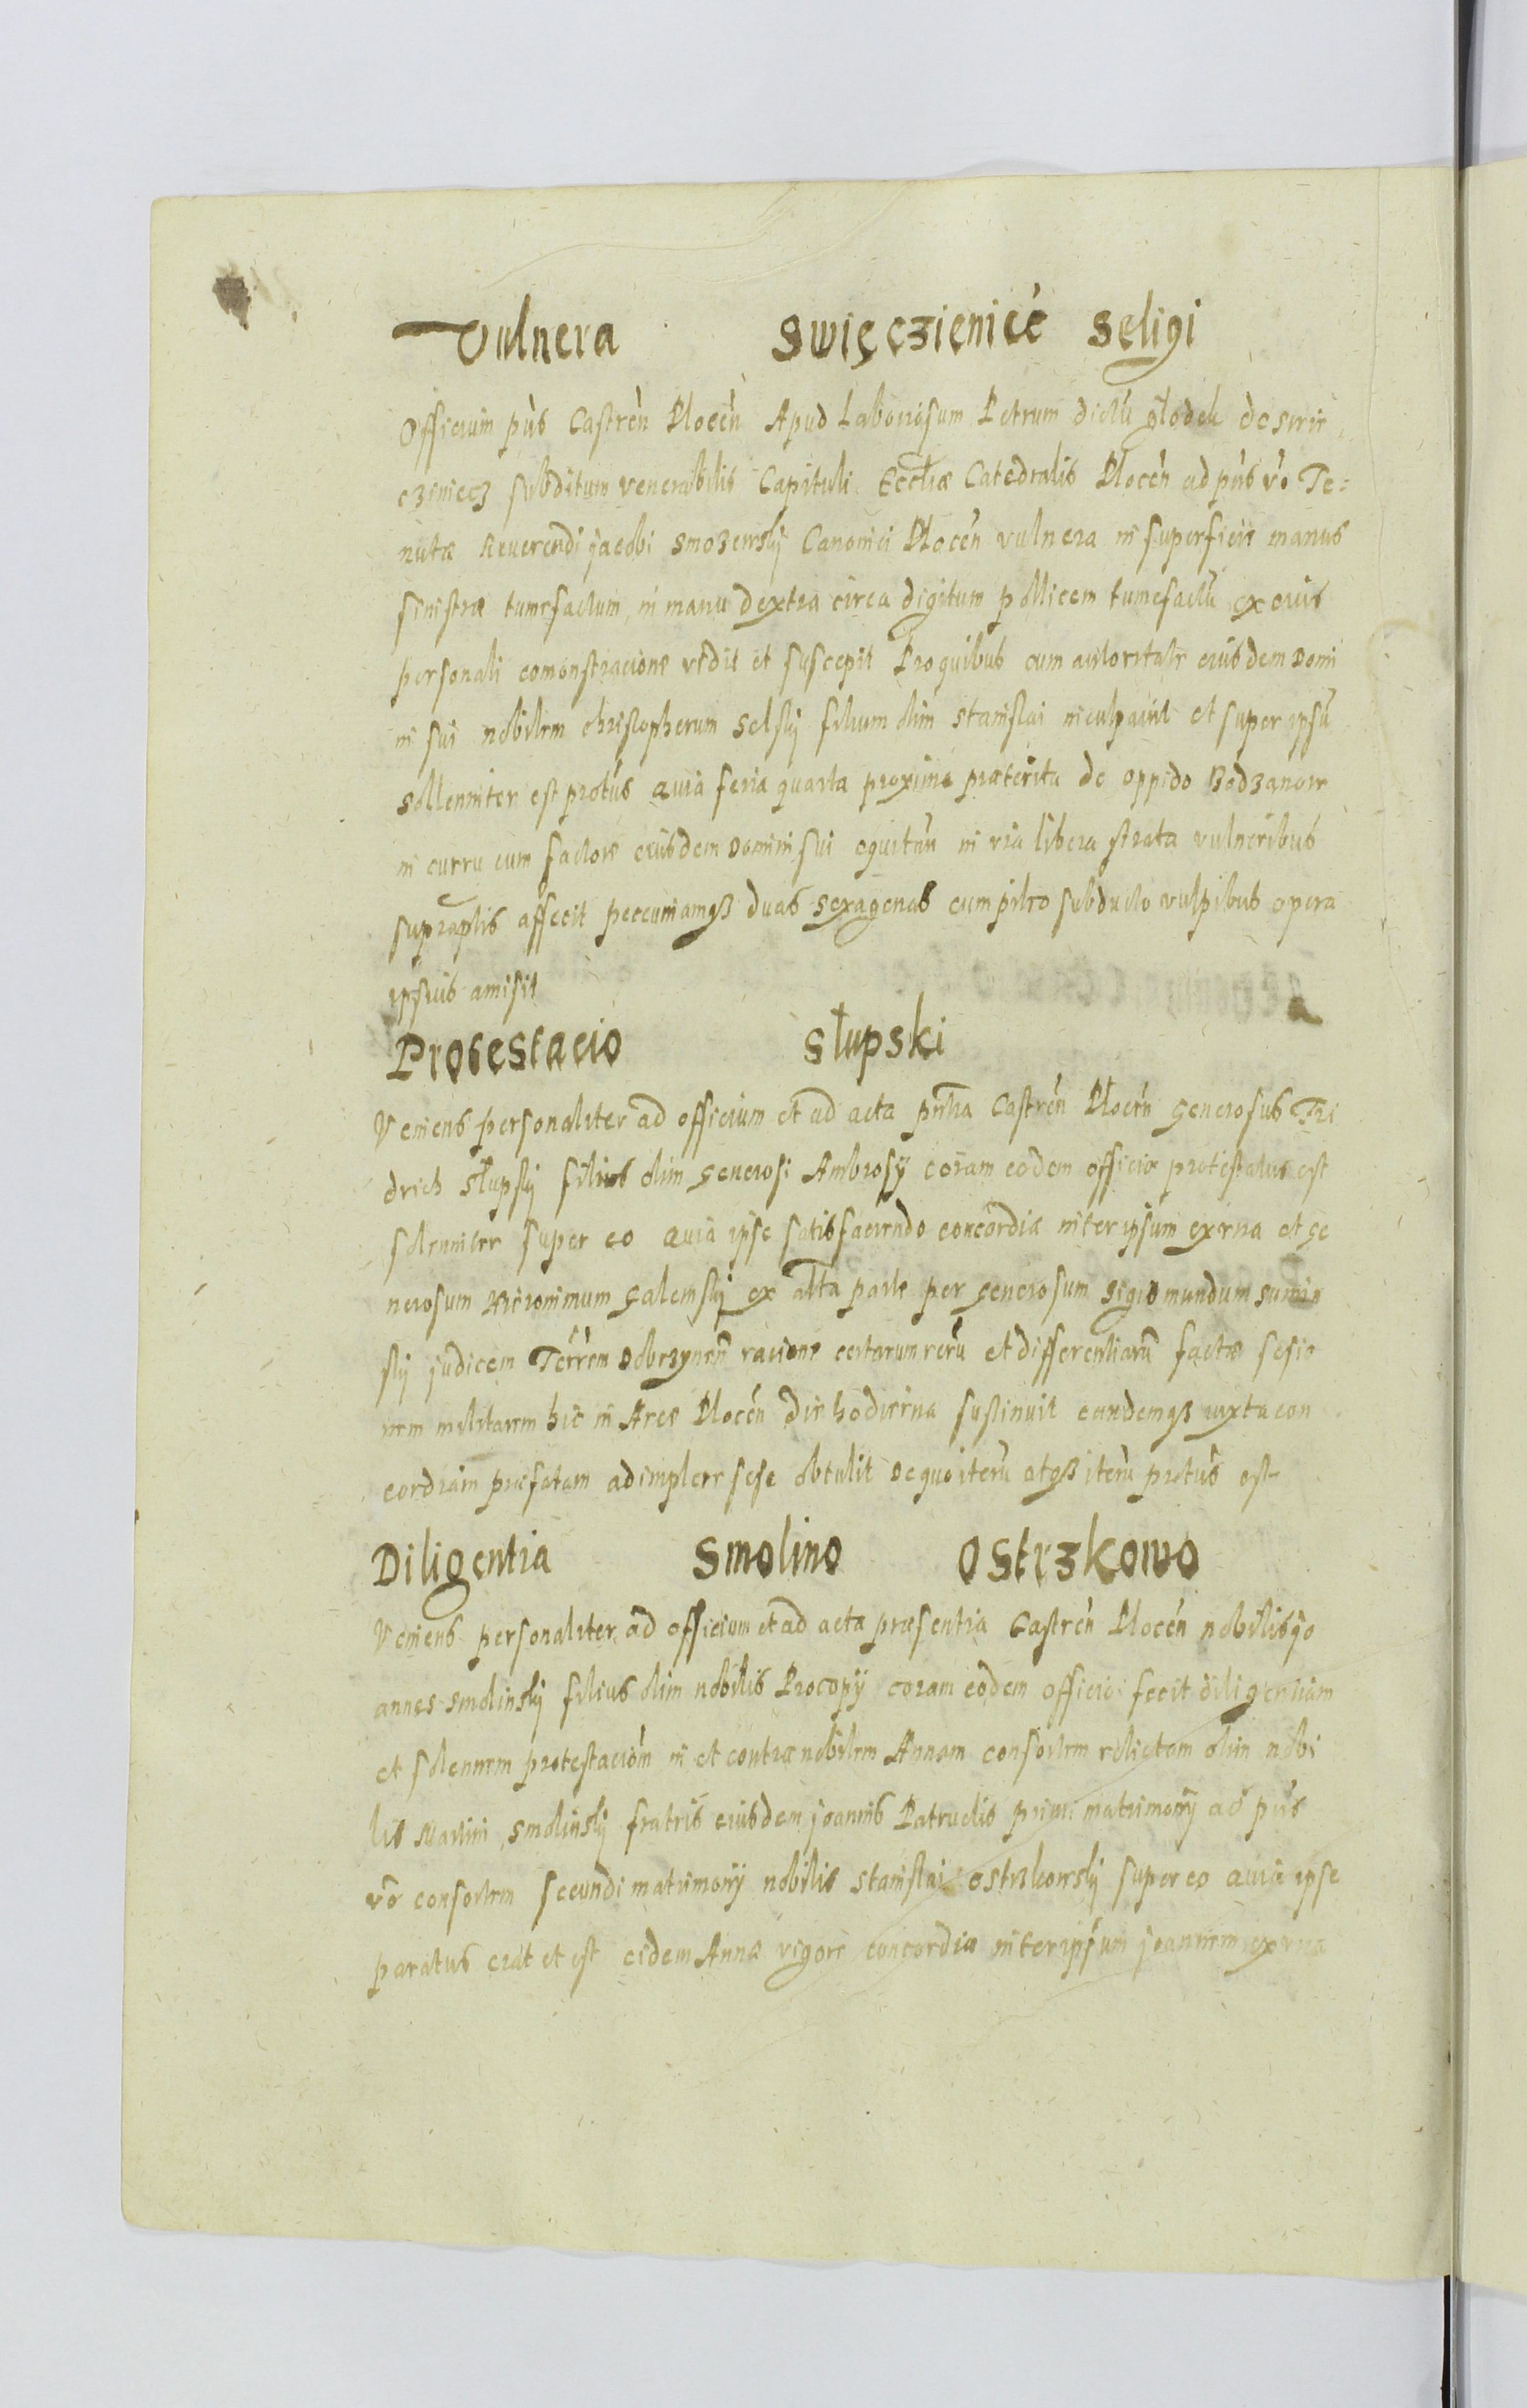 Vulnera Swięczienice Seligi
Officium pñs Castreñ Płoceñ Apud Laboriosum Petrum dictũ głodek de swię
czeniecz subditum venerabilis Capituli Eccłiæ Catedralis Płoceñ ad pñs v̊o Te=
nutæ Reuerendi jacobi Smoszewskj Canonici Płoceñ vulnera in superficie manus
sinistræ tumefactum, in manu dextra circa digitum pollicem tumefactũ ex eius
personali comonstracione vidit et suscepit Pro quibus cum autoritate eiusdem Domi
ni sui nobilem christopherum Selskj filium olim Stanislai inculpauit et super ipsũ
sollenniter est prot̃us quia feria quarta proxime præterita de oppido Bodzanow
in curru cum factore eiusdem Domini sui equitañ in via libera strata vulneribus
supraptis affecit peccuniamqȝ duas sexagenas cum pileo subducto vulpibus opera
ipsius amisit
Protestacio Słupski
Veniens personaliter ad officium et ad acta pñtia Castreñ Płoceñ Generosus Fri
drich Słupskj filius olim Generosi Ambrosÿ coram eodem officio protestatus est
solenniter super eo quia ipse satisfaciendo concordiæ inter ipsum ex vna et Ge
nerosum Hieronimum Galemskj ex alta parte per Generosum Sigismundum
skj judicem Terrem Dobrzyneñ racione certarum rerũ et differentiarũ factæ sessio
nem militarem hic in Arce Płoceñ die hodierna sustinuit eandemqȝ iuxta con
cordiam præfatam adimplere sese obtulit De quo iterũ atqȝ iterũ prot̃us est
Diligentia Smolino Ostrzkowo
Veniens personaliter ad officium et ad acta præsentia Castreñ Płoceñ nobilis jo
annes Smolinskj filius olim nobilis Procopÿ coram eodem officio fecit diligentiam
et solennem protestacioñ in et contra nobilem Annam consortem relictam olim nobi
lis Martini Smolinskj fratris eiusdem joannis Patruelis primi matrimonÿ ad pñs
v̊o consortem secundi matrimonÿ nobilis Stanislai Ostrzkowskj super eo quia ipse
paratus erat et est eidem Annæ vigore concordiæ inter ipsum joannem ex vna